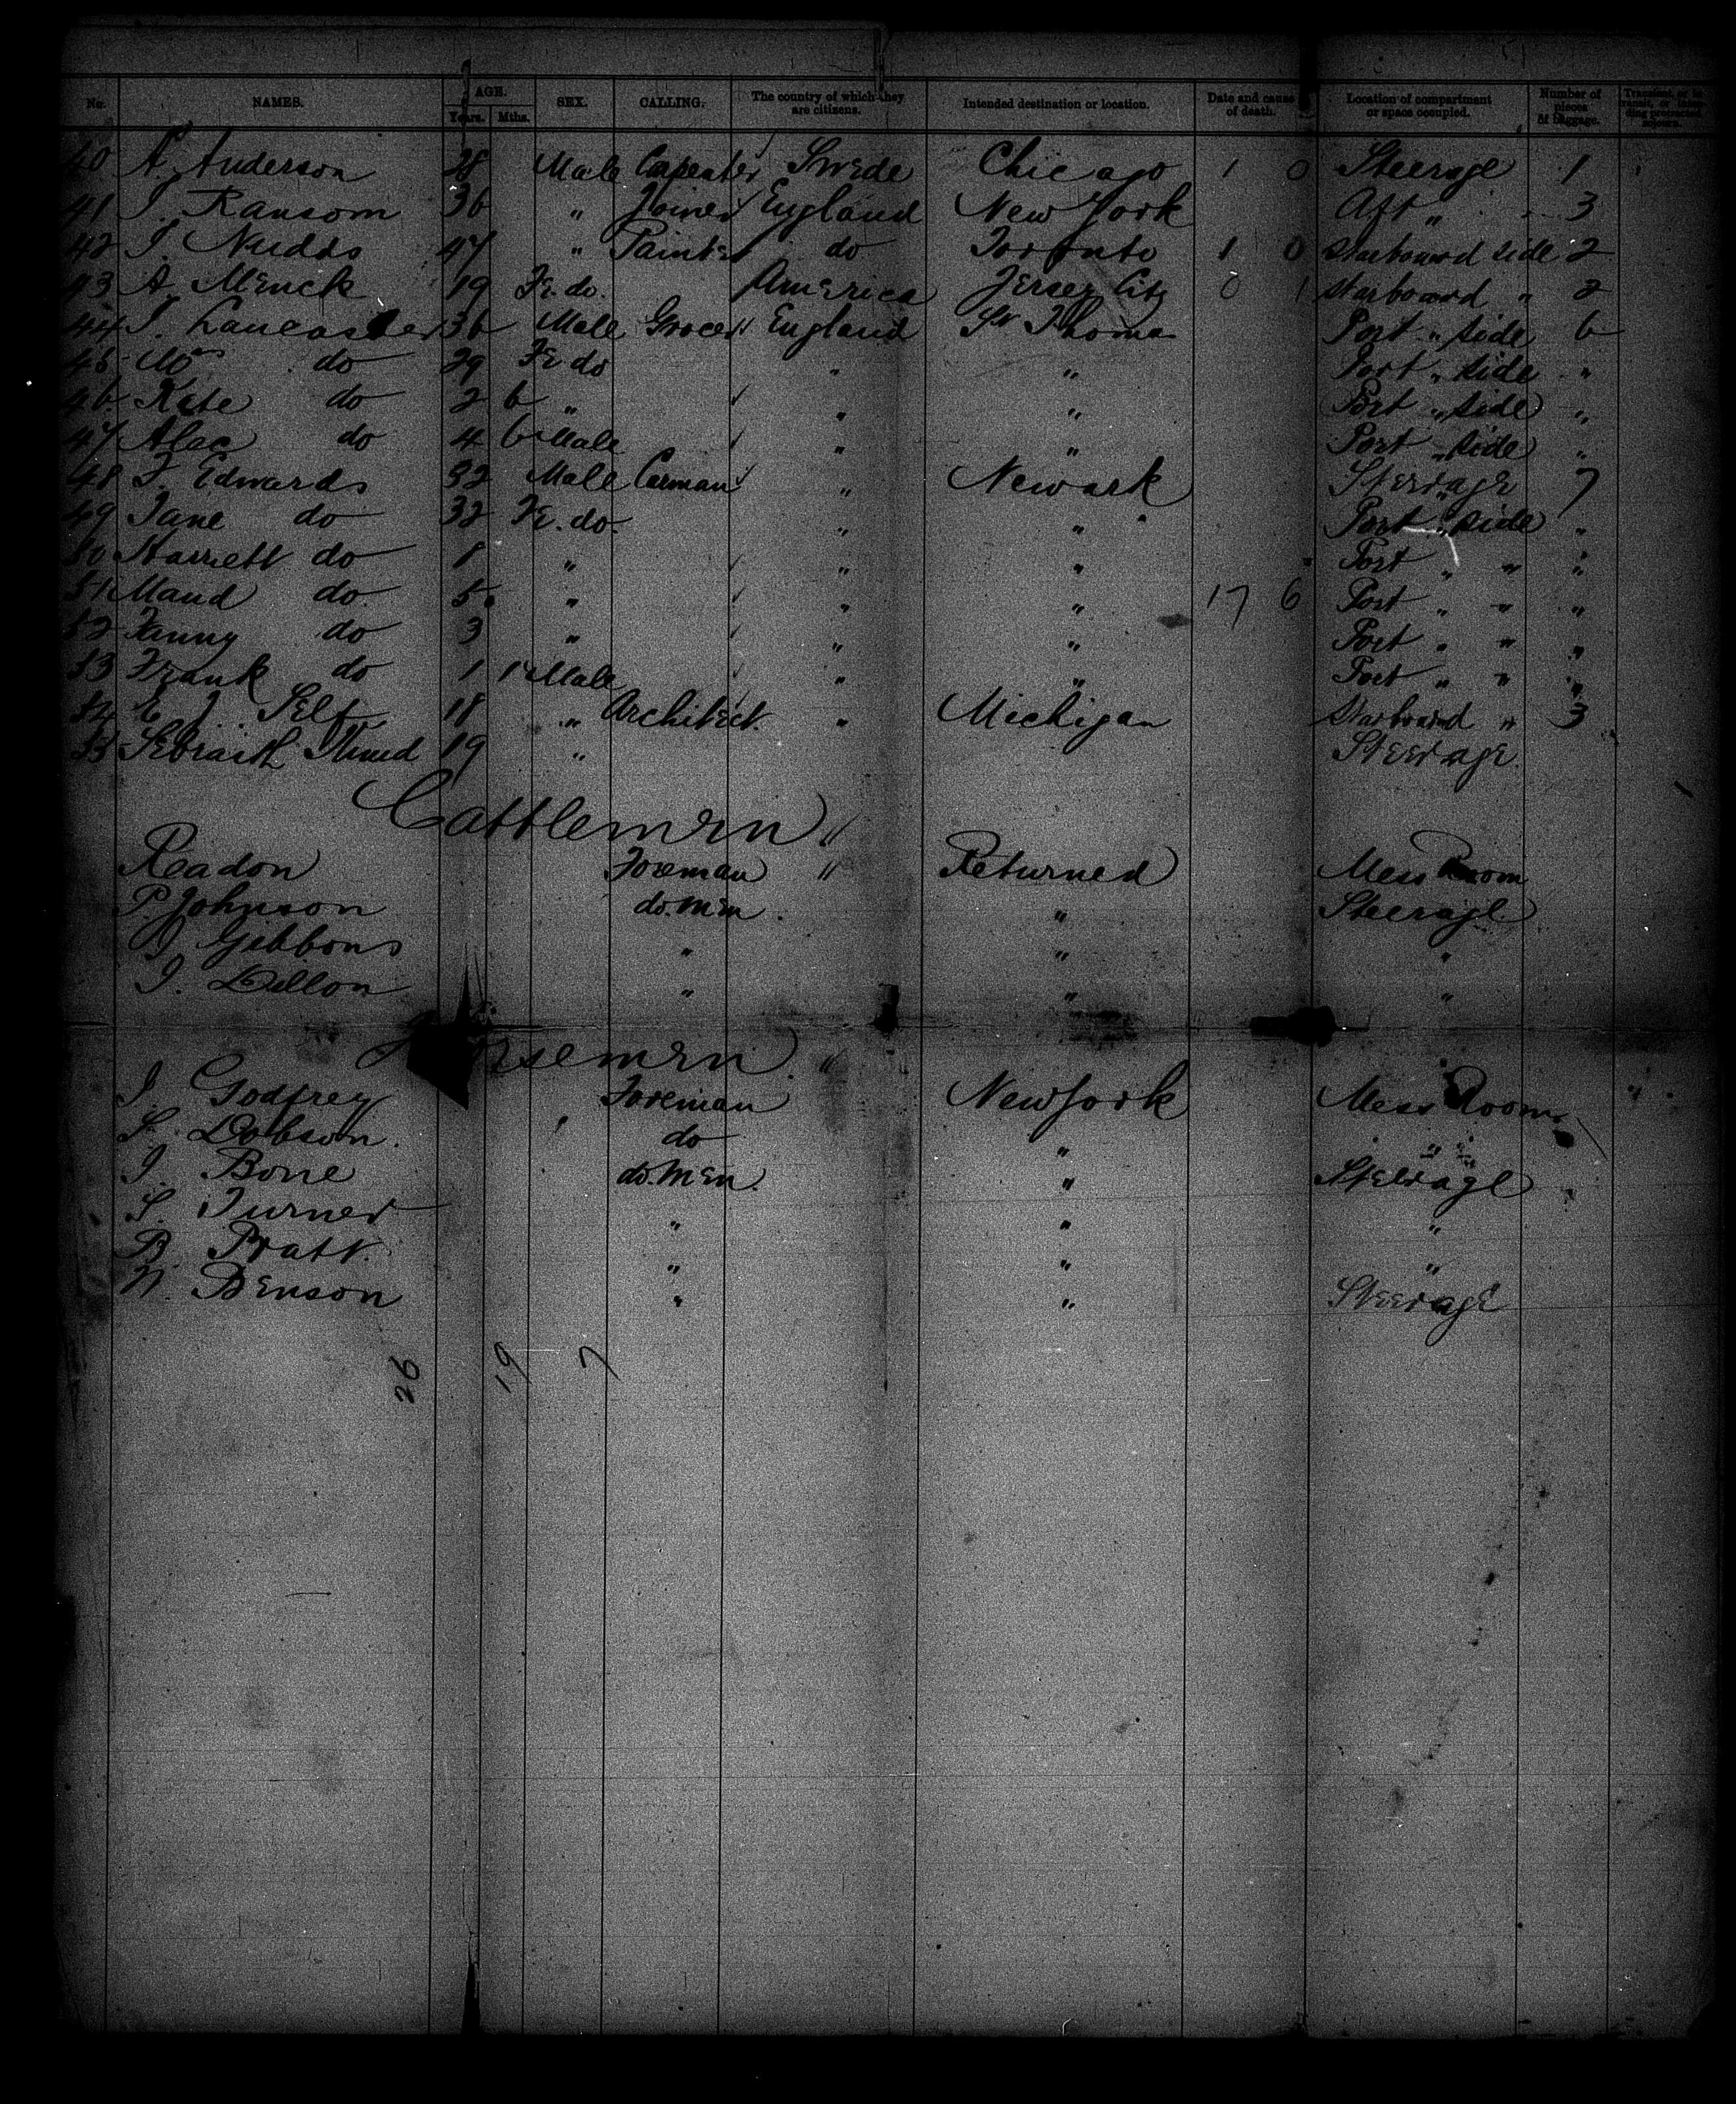 No. NAMES. AGE. Years. Mths. SEX. CALLING. The country of which they are citizens. Intended destination or location. Date and cause of death. Location of compartment or space occupied. Number of pieces of baggage. Transient, or in transit, or intending protracted sojourn.
40 A. Anderson 28 Male Carpenter Swede Chicago 1 0 Steerage 1
41 J. Ransom 36 " Joiner England New York Aft " 3
42 J. Nudds 47 " Painter do Toronto 1 0 Starboard side 2
43 A Menck 19 Fe. do. America Jersey City 0 1 Starboard " 2
44 J. Lancaster 36 Male Grocer England St Thomas Port " side 6
45 do 29 Fe do " " Port " side "
46 Kate do 2 6 " " " Port " side "
47 Alec do 4 6 Male " " Port " side "
48 F. Edwards 32 Male Carman " Newark Steerage 7
49 Jane do 32 Fe. do " " Port " side "
50 Harriett do 8 " " " Port " " "
51 Maud do. 5 " " " 17 6 Port " " "
52 Fanny do 3 " " " Port " " "
53 Frank do 1 1 Male " " Port " " "
54 E. J. Self 18 " Architect. " Michigan Starboard " 3
55 19 " Steerage.
Cattlemen "
Readon Foreman " Returned Mess Room
P. Johnson do. Men. " Steerage
J Gibbons " " "
J. Dillon " " "
Horsemen. "
J. Godfrey Foreman New York Mess Room
S. Dobson. do " "
J. Bone do. Men. " Steerage
S. Turner " " "
B. Pratt. " " "
W. Benson " " Steerage
26 19 7